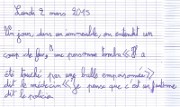 Lundi 2 mars 2015
Un jour, dans un immeuble, on entendit un
coup de feu, une personne tomba « Il a
été touché par une balle empoisonnée »
dit le médecin « Je pense que c'est un fantôme
dit le policier